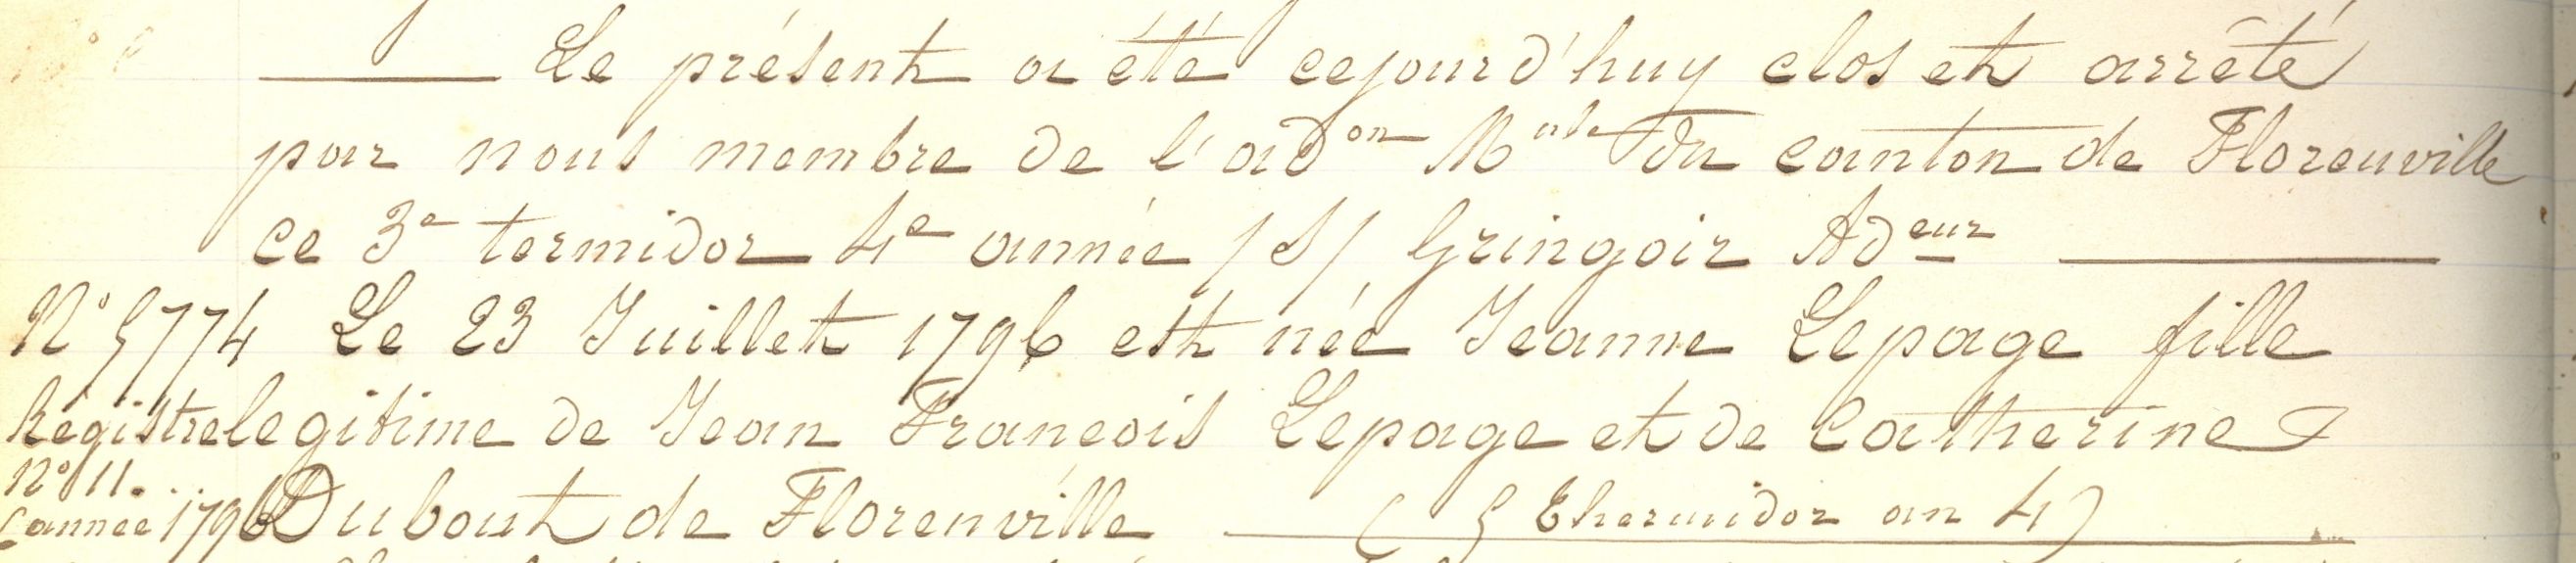 Le présent a été cejourd'huy clos et arrêté
par nous membre de l'adon Male du canton de Florenville
ce 3e termidor 4e année /S/ Gringoir Adeur
N° 5774 Le 23 Juillet 1796 est née Jeanne Lepage fille
Registre legitime de Jean Francois Lepage et de Catherine
N° 11.
(année 1796 Dubout de Florenville (5 Thermidor an 4)